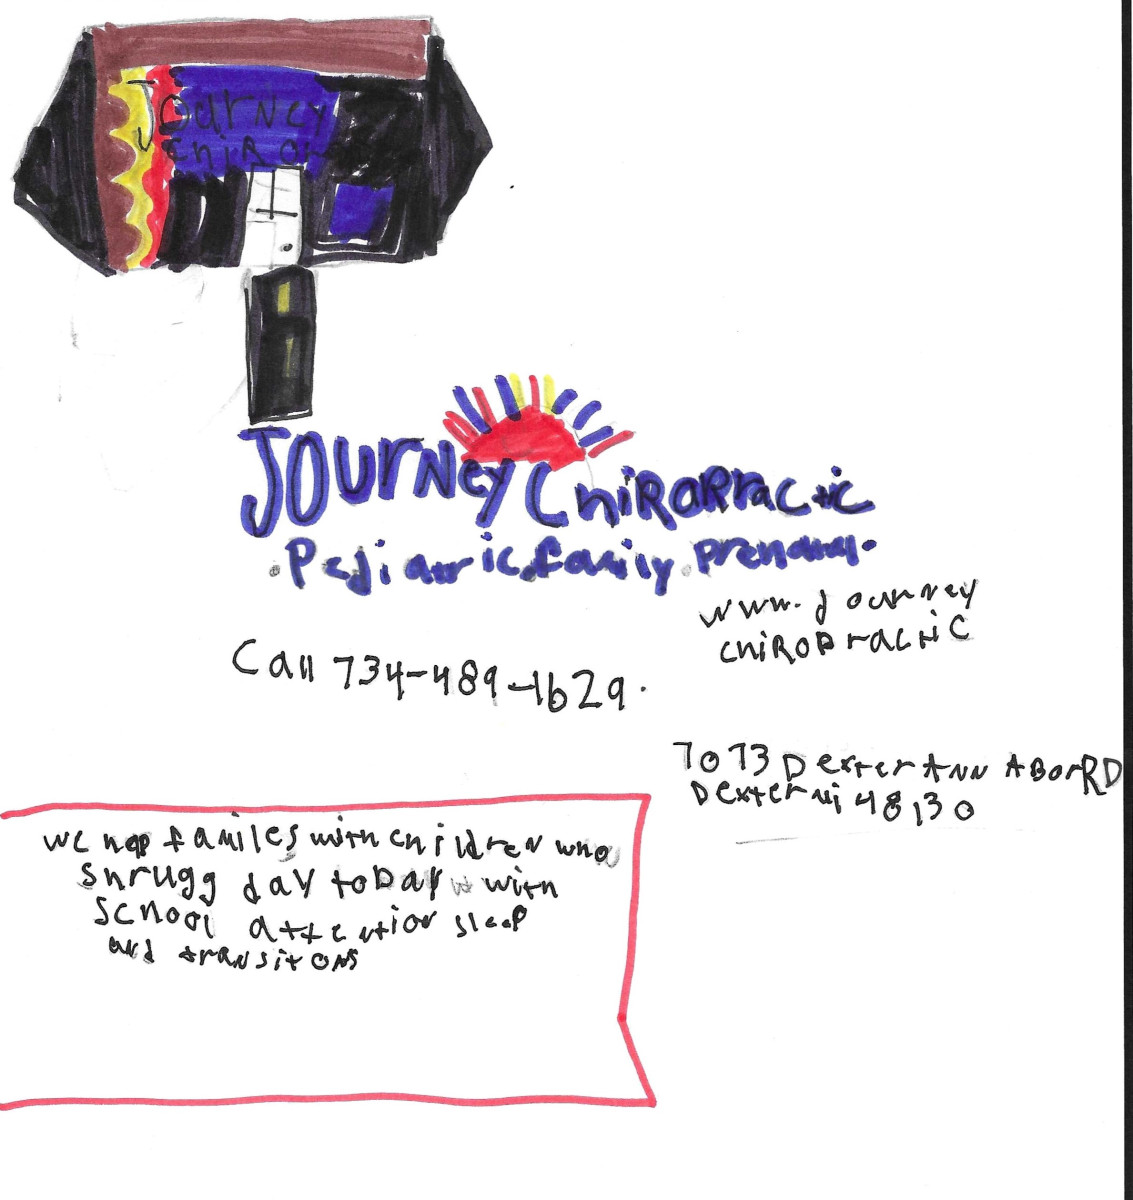 JOURNEY
CHIRO
JOURNEY CHIROPRACTIC
.Pediatric.family.prenatal.
www.Journey
CHIROPRACTIC
Call 734-489-1629.
7073 Dexter ANN ABOR RD
Dexter Mi 48130
we hep familes with children who
shrugg day to Day with
SCHOOl attention sleep
and transitons